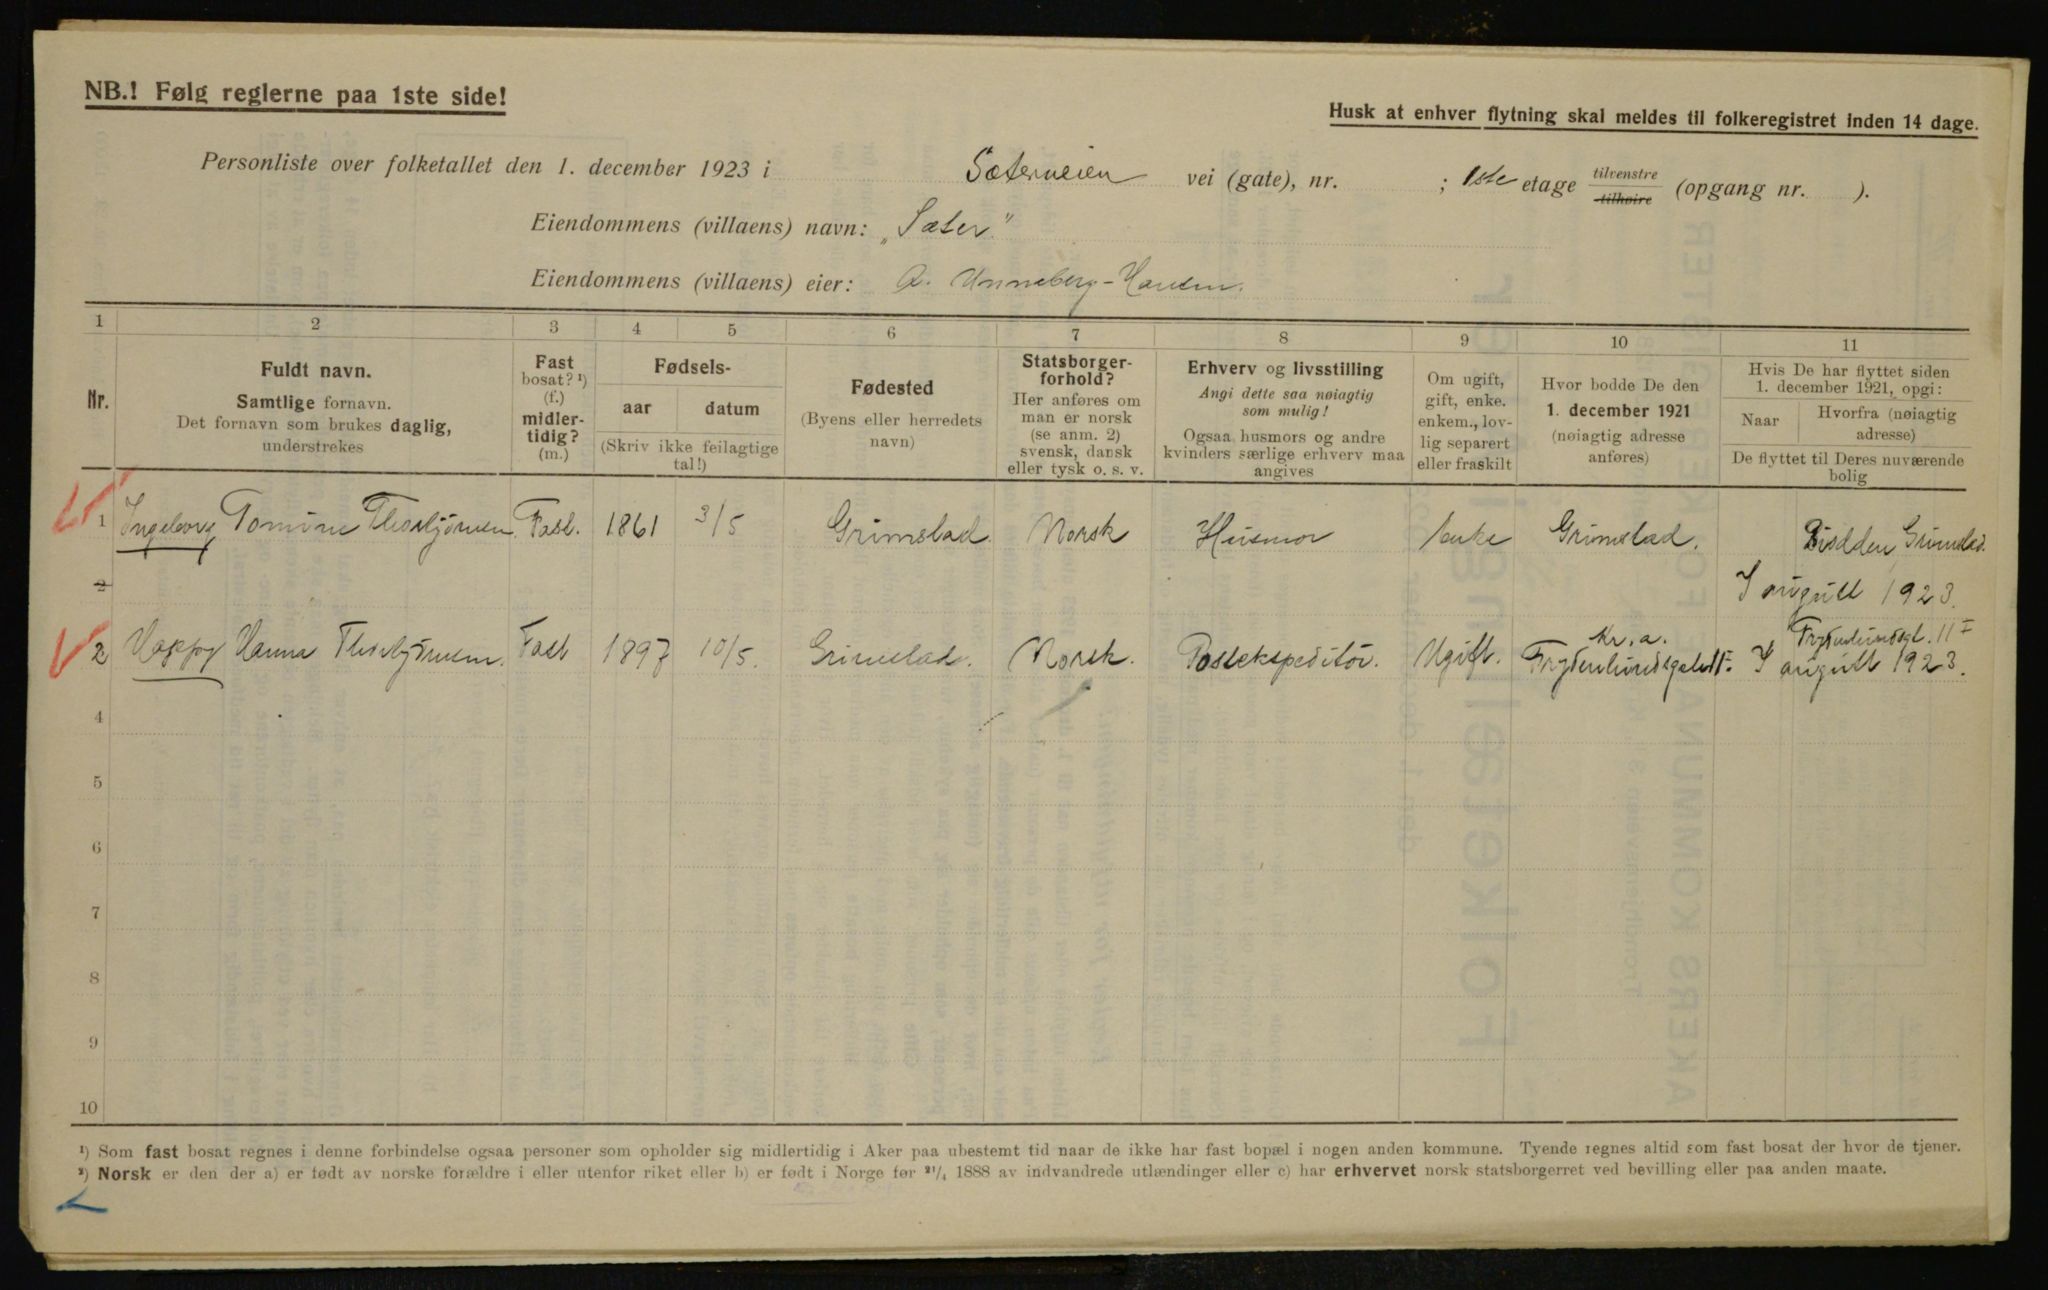 NB.! Følg reglerne paa 1ste side!
Husk at enhver flytning skal meldes til folkeregistret inden 14 dage.
Personliste over folketallet den 1. december 1923 i Sæterveien vei (gate), nr. ; 1ste etage tilvenstre tilhøire (opgang nr. ).
Eiendommens (villaens) navn: „Sæter"
Eiendommens (villaens) eier: A. Unneberg-Hansen.
1 2 3 4 5 6 7 8 9 10 11
Nr.
Fuldt navn.
Samtlige fornavn.
Det fornavn som brukes daglig,
understrekes
Fast
bosat? ¹)
(f.)
midler-
tidig?
(m.)
Fødsels-
aar datum
(Skriv ikke feilagtige
tal!)
Fødested
(Byens eller herredets
navn)
Statsborger-
forhold?
Her anføres om
man er norsk
(se anm. 2)
svensk, dansk
eller tysk o. s. v.
Erhverv og livsstilling
Angi dette saa nøiagtig
som mulig!
Ogsaa husmors og andre
kvinders særlige erhverv maa
angives
Om ugift,
gift, enke.
enkem., lov-
lig separert
eller fraskilt
Hvor bodde De den
1. december 1921
(nøiagtig adresse
anføres)
Hvis De har flyttet siden
1. december 1921, opgi:
Naar Hvorfra (nøiagtig
adresse)
De flyttet til Deres nuværende
bolig
1 Ingeborg Tomine Thorbjørnsen. Fast. 1861 3/5 Grimstad Norsk Husmor enke Grimstad. Grimstad.
2 I august 1923.
2 Hanna Thorbjørnsen. Fast 1897 10/5. Grimstad. Norsk. Postekspeditør. Ugift. Kr.a. Frydenlundsgt. 11 I
I august 1923.
4
5
6
7
8
9
10
¹) Som fast bosat regnes i denne forbindelse ogsaa personer som opholder sig midlertidig i Aker paa ubestemt tid naar de ikke har fast bopæl i nogen anden kommune. Tyende regnes altid som fast bosat der hvor de tjener.
²) Norsk er den der a) er født av norske forældre i eller utenfor riket eller b) er født i Norge før ²¹/₄ 1888 av indvandrede utlændinger eller c) har erhvervet norsk statsborgerret ved bevilling eller paa anden maate.